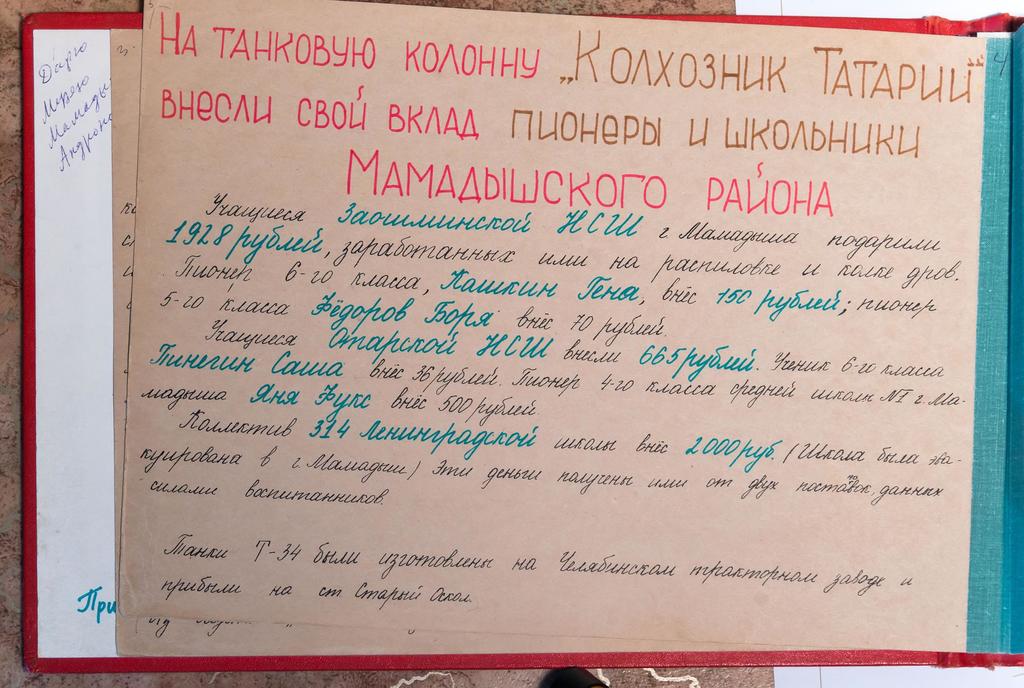 Мамады
На танковую колонну „Колхозник Татарии"
внесли свой вклад пионеры и школьники
Мамадышского района
Учащиеся Заошминской НСШ г. Мамадыша подарили
1928 рублей, заработанных ими на распиловке и колке дров.
Пионер 6-го класса, Кашкин Гена, внёс 150 рублей; пионер
5-го класса Фёдоров Боря внёс 70 рублей.
Учащиеся Отарской НСШ внесли 665 рублей. Ученик 6-го класса
Пинегин Саша внёс 36 рублей. Пионер 4-го класса средней школы №1 г. Ма-
мадыша Яня Фукс внёс 500 рублей.
Коллектив 314 Ленинградской школы внёс 2000 руб. (Школа была эва-
куирована в г. Мамадыш) Эти деньги получены ими от двух постановок, данных
силами воспитанников.
Танки Т-34 были изготовлены на Челябинском тракторном заводе и
прибыли на ст Старый Оскол.
При
4